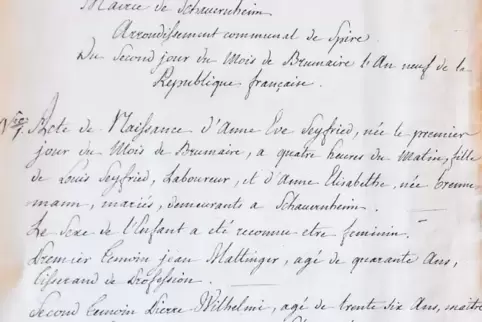 Mairie de Schauernheim
Arrondissement communal de Spire
Du Second jour du Mois de Brumaire l'An neuf de la
Republique française.
Acte de Naissance d'Anne Eve Seyfried, née le premier
jour du Mois de Brumaire, a quatre heures du Matin, fille
de Louis Seyfried, Laboureur, et d'Anne Elisabethe, née
mann, mariés, demeurants a Schauernheim.
Le Sexe de l'Enfant a été reconnu etre feminin.
Premier Temoin jean Mattinger, agé de quarante Ans,
tisserand de Profession.
Second Temoin Pierre Wilhelmi, agé de trente six Ans, maitre